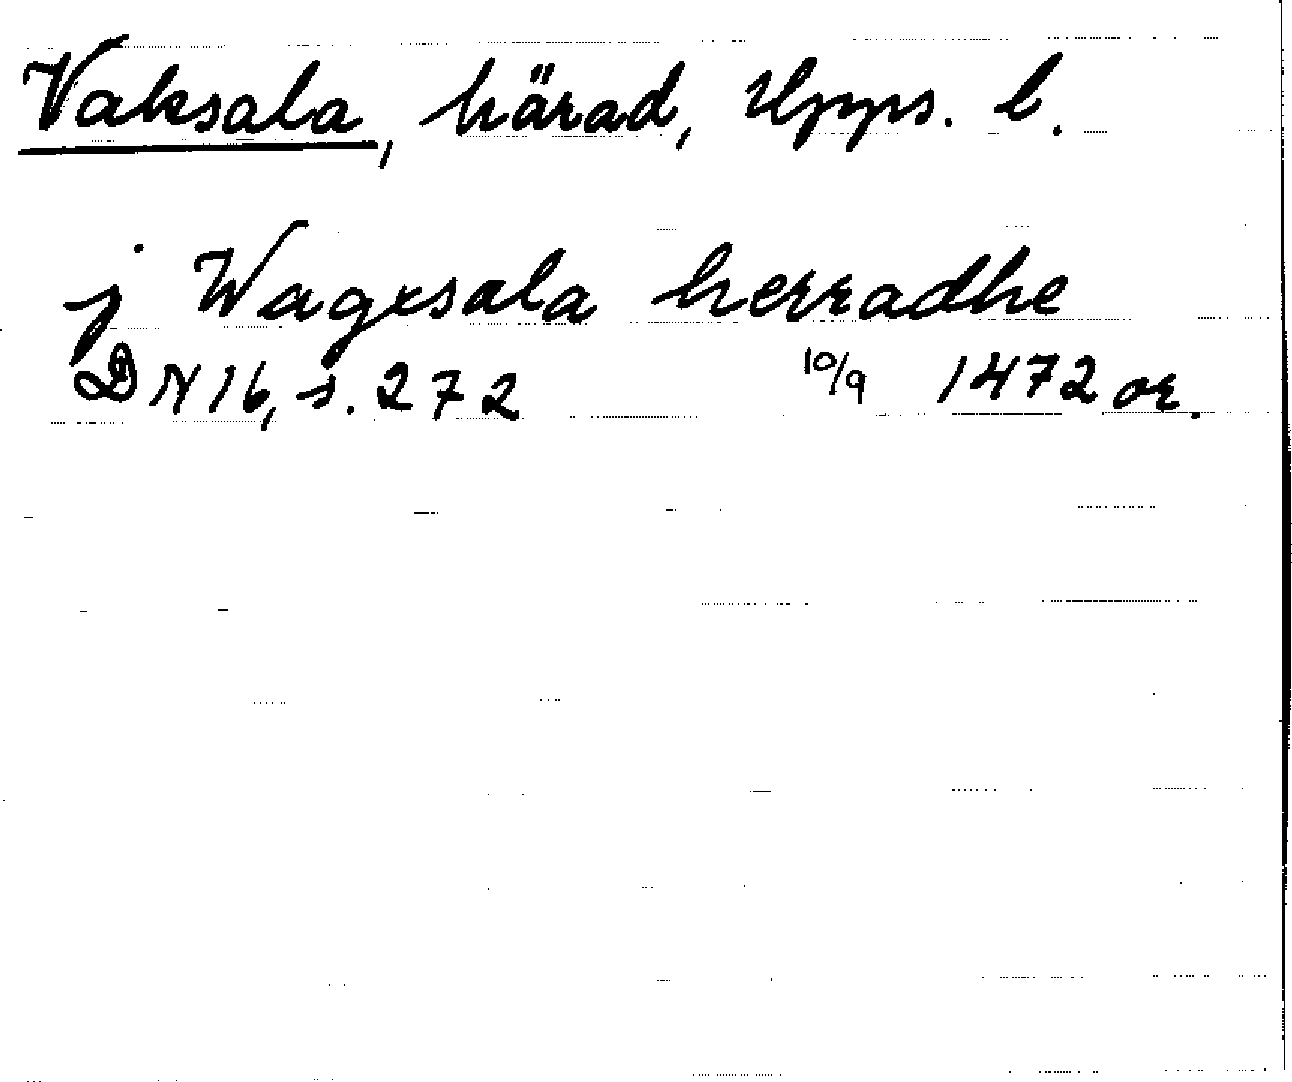 Vaksala, härad, Upps. l.
j Wagxsala herradhe
DN 16, s. 272 10/9 1472 or.